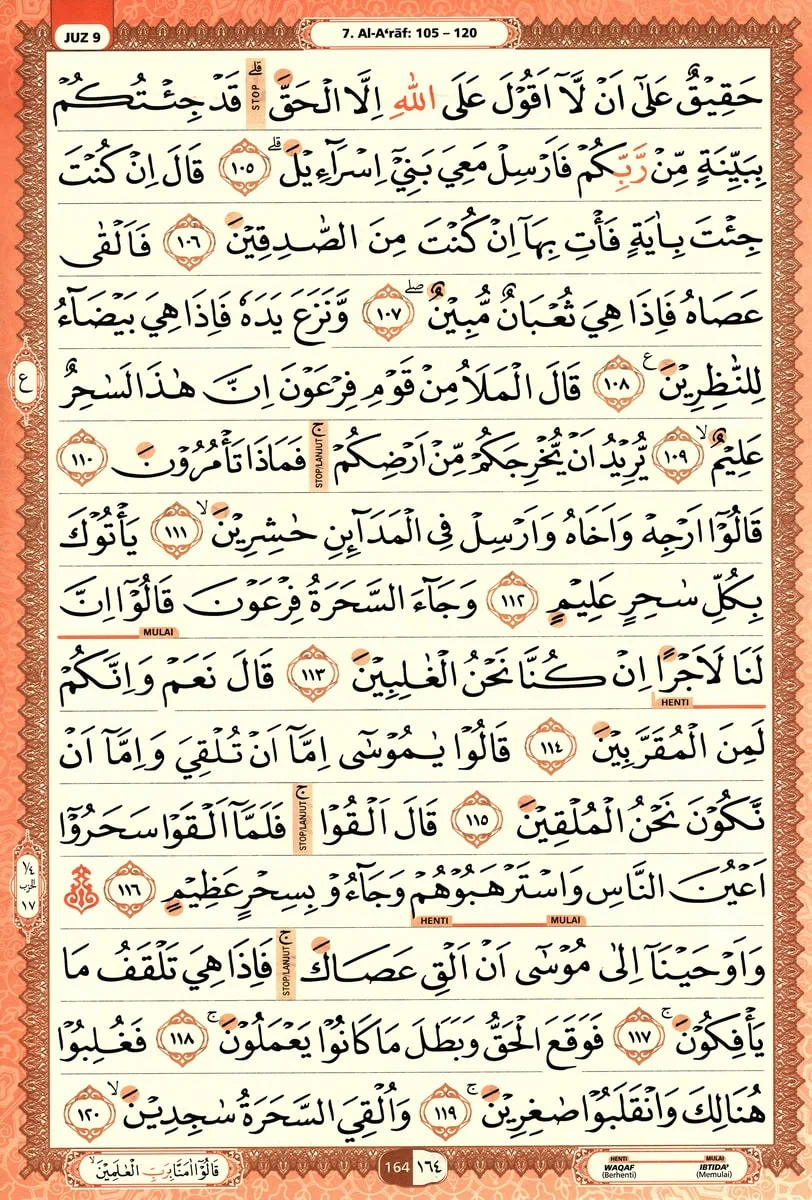 JUZ 9
7. Al-A‘rāf: 105 – 120
حَقِيْقٌ عَلٰٓى اَنْ لَّآ اَقُوْلَ عَلَى اللّٰهِ اِلَّا الْحَقَّۗ STOP قَدْ جِئْتُكُمْ
بِبَيِّنَةٍ مِّنْ رَّبِّكُمْ فَاَرْسِلْ مَعِيَ بَنِيْٓ اِسْرَاۤءِيْلَۗ ١٠٥ قَالَ اِنْ كُنْتَ
جِئْتَ بِاٰيَةٍ فَأْتِ بِهَآ اِنْ كُنْتَ مِنَ الصّٰدِقِيْنَ ١٠٦ فَاَلْقٰى
عَصَاهُ فَاِذَا هِيَ ثُعْبَانٌ مُّبِيْنٌۖ ١٠٧ وَّنَزَعَ يَدَهٗ فَاِذَا هِيَ بَيْضَاۤءُ
ع
لِلنّٰظِرِيْنَ ࣖ ١٠٨ قَالَ الْمَلَاُ مِنْ قَوْمِ فِرْعَوْنَ اِنَّ هٰذَا لَسٰحِرٌ
عَلِيْمٌۙ ١٠٩ يُّرِيْدُ اَنْ يُّخْرِجَكُمْ مِّنْ اَرْضِكُمْۚ STOP/LANJUT فَمَاذَا تَأْمُرُوْنَ ١١٠
قَالُوْٓا اَرْجِهْ وَاَخَاهُ وَاَرْسِلْ فِى الْمَدَاۤىِٕنِ حٰشِرِيْنَۙ ١١١ يَأْتُوْكَ
بِكُلِّ سٰحِرٍ عَلِيْمٍ ١١٢ وَجَاۤءَ السَّحَرَةُ فِرْعَوْنَ قَالُوْٓا اِنَّ
MULAI
لَنَا لَاَجْرًا اِنْ كُنَّا نَحْنُ الْغٰلِبِيْنَ ١١٣ قَالَ نَعَمْ وَاِنَّكُمْ
HENTI
لَمِنَ الْمُقَرَّبِيْنَ ١١٤ قَالُوْا يٰمُوْسٰٓى اِمَّآ اَنْ تُلْقِيَ وَاِمَّآ اَنْ
نَّكُوْنَ نَحْنُ الْمُلْقِيْنَ ١١٥ قَالَ اَلْقُوْاۚ STOP/LANJUT فَلَمَّآ اَلْقَوْا سَحَرُوْٓا
١/٤ الحزب ١٧
اَعْيُنَ النَّاسِ وَاسْتَرْهَبُوْهُمْ وَجَاۤءُوْ بِسِحْرٍ عَظِيْمٍ ١١٦
HENTI MULAI
وَاَوْحَيْنَآ اِلٰى مُوْسٰٓى اَنْ اَلْقِ عَصَاكَۚ STOP/LANJUT فَاِذَا هِيَ تَلْقَفُ مَا
يَأْفِكُوْنَۚ ١١٧ فَوَقَعَ الْحَقُّ وَبَطَلَ مَا كَانُوْا يَعْمَلُوْنَۚ ١١٨ فَغُلِبُوْا
هُنَالِكَ وَانْقَلَبُوْا صٰغِرِيْنَۚ ١١٩ وَاُلْقِيَ السَّحَرَةُ سٰجِدِيْنَۙ ١٢٠
قَالُوْٓا اٰمَنَّا بِرَبِّ الْعٰلَمِيْنَۙ
164 ١٦٤
HENTI MULAI
WAQAF IBTIDA'
(Berhenti) (Memulai)